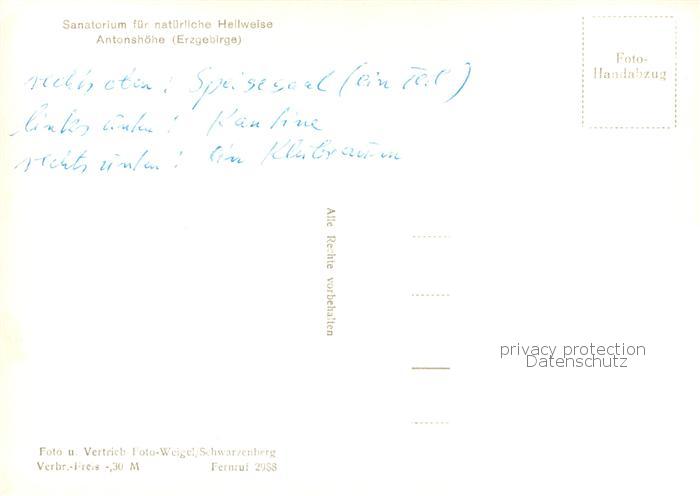 Sanatorium für natürliche Heilweise
Antonshöhe (Erzgebirge)
Foto-
Handabzug
rechts oben: Speisesaal (ein Teil)
links unten: Kantine
rechts unten: Ein Klubraum
Alle Rechte vorbehalten
privacy protection
Datenschutz
Foto u. Vertrieb Foto-Weigel/Schwarzenberg
Verbr.-Preis -,30 M Fernruf 2988